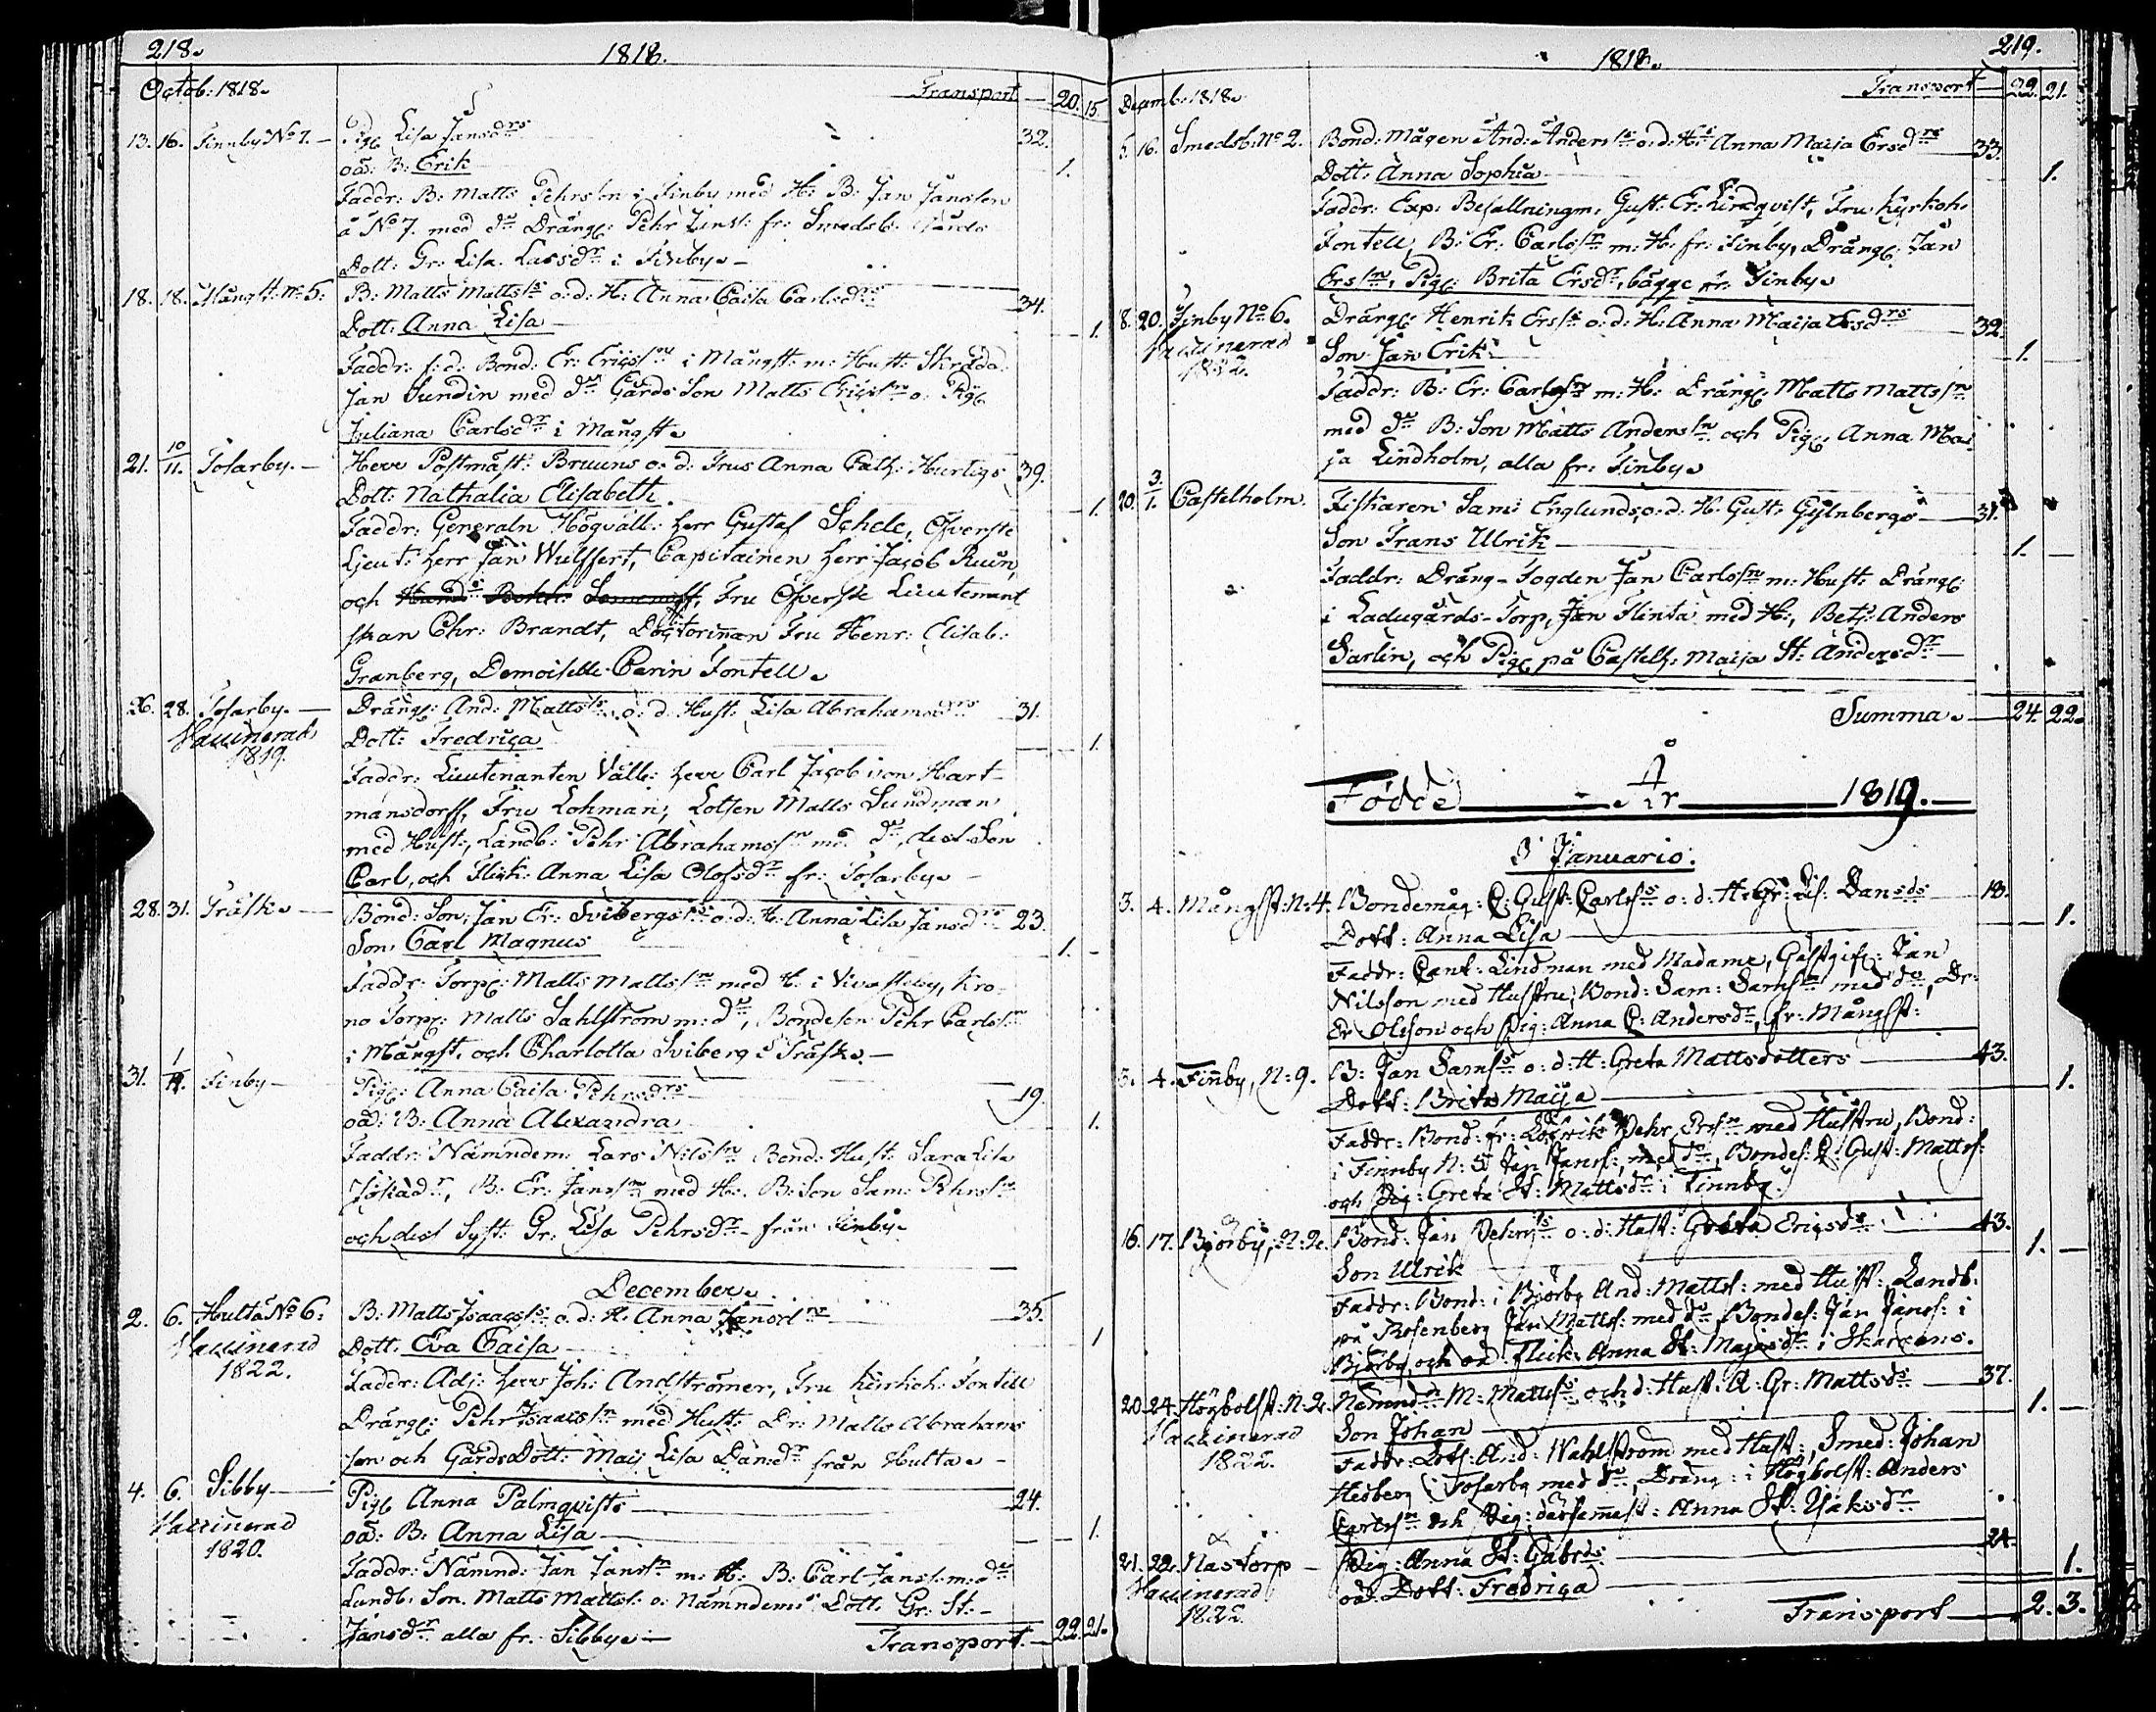 218.
1818.
Octob: 1818.
Transport — 20. 15
13. 16. Finnby No 7. — Pig: Lisa Jansdrs 32.
oä: B: Erik 1.
Faddr: B: Matts Pehrsson i Finby med H: B: Jan Jansson
å No 7. med do Dräng: Pehr fr: Smedsb.
Dott: Gr: Lisa Larsdr i Finby. —
18. 18. Mångst: No 5: B: Matts Mattss: o: d: H: Anna Caisa Carlsdrs 34.
Dott: Anna Lisa 1.
Faddr: f: d: Bond: Er: Ericssn i Mångst: m: Hust: Skrädd:
Jan Sundin med do Gårds Son Matts Ericssn o: Pig:
Juliana Carlsdr i Mångst.
21. 10/11. Tosarby. — Herr Postmäst: Bruuns o: d: Frus Anna Cath: Hurtigs 39.
Dott: Nathalia Elisabeth. 1.
Faddr: Generaln Högvälb: Herr Gustaf Schele, Öfverste
Lieut: Herr Jan Wulffert, Capitainen Herr Jacob Ruun,
och Fru Öfverste Lieutenant
skan Chr: Brandt, Doctorinnan Fru Henr: Elisab:
Granberg, Demoiselle Carin Fontell.
26. 28. Tosarby. — Dräng: And: Mattss: o: d: Hust: Lisa Abrahamsdrs 31.
Vaccinerad Dott: Fredrica 1.
1819.
Faddr: Lieutenanten Välb: Herr Carl Jacob von Hart-
mansdorff, Fru Lohman, Lotsen Matts Sundman
med Hust:, Landb: Pehr Abrahamssn med do, dess Son
Carl, och Flick: Anna Lisa Olofsdr fr: Tosarby. —
28. 31. Träsk. — Bond: Son: Jan Er: Svibergs o: d: H: Anna Lisa Jansdrs 23.
Son Carl Magnus 1. —
Faddr: Torp: Matts Mattssn med H: i Vivasteby, Kro-
no Torp: Matts Sahlström m: do, Bondeson Pehr Carlssn
i Mångst. och Charlotta Sviberg i Träsk. —
31. Finby — Pig: Anna Caisa Pehrsdrs 19.
oä: B: Anna Alexandra 1.
Faddr: Nämndem: Lars Nilssn Bond: Hust: Sara Lisa
B: Er: Janssn med H: B: Son Sam: Pehrssn
och dess Syst: Gr: Lisa Pehrsdr från Finby.
December.
2. 6. Hulta No 6: B: Matts Isaacss: o: d: H: Anna Jansdrs 35.
Vaccinerad Dott: Eva Caisa 1
1822.
Faddr: Adj: Herr Joh: Andströmer, Fru Kyrkoh: Fontell
Dräng: Pehr Isaacssn med Hust: Dr: Matts Abrahams
son och GårdsDott: Maij Lisa Dansdr från Hulta. —
4. 6. Sibby — Pig: Anna Palmqvists 24.
Vaccinerad oä: B: Anna Lisa 1.
1820.
Faddr: Nämnd: Jan Janssn m: H: B: Carl Janss: m: do
Landb: Son. Matts Mattss: o: Nämndems Dott: Gr: St: —
Jansdr alla fr: Sibby. — Transport. — 22. 21.
219.
1818.
Decemb: 1818.
Transport — 22. 21.
5. 16. Smedsb: No 2. Bond: Mågen And: Anderss: o: d: H: Anna Maija Ersdrs 33.
Dott: Anna Sophia 1.
Faddr: Exp: Befallningm: Gust: Er: Lindqvist, Fru Kyrkoh:
Fontell, B: Er: Carlssn m: H: fr: Finby, Dräng: Jan
Erssn, Pig: Brita Ersdr, bägge fr: Finby.
8. 20. Finby No 6. Dräng: Henrik Erss: o: d: H: Anna Maija Ersdrs 32.
Vaccinerad Son Jan Erik 1.
1822.
Faddr: B: Er: Carlssn m: H: Dräng: Matts Mattssn
med do B: Son Matts Anderssn och Pig: Anna Mai-
ja Lindholm, alla fr: Finby.
20. 3/1. Castelholm. Fiskaren Sam: Englunds, o: d: H: Gust: Gyllnbergs — 31.
Son Frans Ulrik 1. —
Faddr: Dräng-Fogden Jan Carlssn m: Hust: Dräng:
i Ladugårds-Torp, Jan Flinta med H:, Betj: Anders
Sarlin, och Pig: på Castelh: Maija St: Andersdr —
Summa. — 24. 22.
Födde År 1819.
I Januario.
3. 4. Mångst: N: 4. Bondemåg: C: Gust: Carlss: o: d: H: Gr: Lis: Dansds 18.
Dott: Anna Lisa — 1.
Faddr: Cant: Lindman med Madame, Gästgif: Jan
Nilsson med Hustru, Bond: Sam: Samssn med do, Dr:
Er: Olsson och Pig: Anna C: Andersdr, fr: Mångst:
3. 4. Finnby, N: 9. B: Jan Samss: o: d: H: Greta Mattsdotters 43.
Dott: Brita Maija 1.
Faddr: Bond: fr: Löfvik Pehr Erssn med Hustru, Bond:
i Finnby N: 5 Jan Janss:, med do, Bondes: C: Gust: Mattss:
och Pig: Greta St: Mattsdr i Finnby.
16. 17. Björby, N: 2. Bond: Jan Pehrss: o: d: Hust: Greta Ericsds 43.
Son Ulrik 1. —
Faddr: Bond: i Björby And: Mattss: med Hust:, Landb:
på Rosenberg Jan Mattss: med do, Bondes: Jan Janss: i
Björby, och oä: Flick: Anna St: Majasdr i Skarpans.
20. 24. Högbolst: N: 2. Nämndm M: Mattss: och d: Hust: A: Gr: Mattsds 37.
Vaccinerad Son Johan 1. —
1822.
Faddr: Lots: And: Wahlström med Hust:, Smed: Johan
Hedberg i Tosarby med do, Dräng: i Högbolst: Anders
Carlssn och Pig: därsemmast: Anna St: Isaksdr
21. 22. Nastorp — Pig: Anna St: Gabrds 24.
Vaccinerad oä: Dott: Fredrica 1.
1822.
Transport — 2. 3.